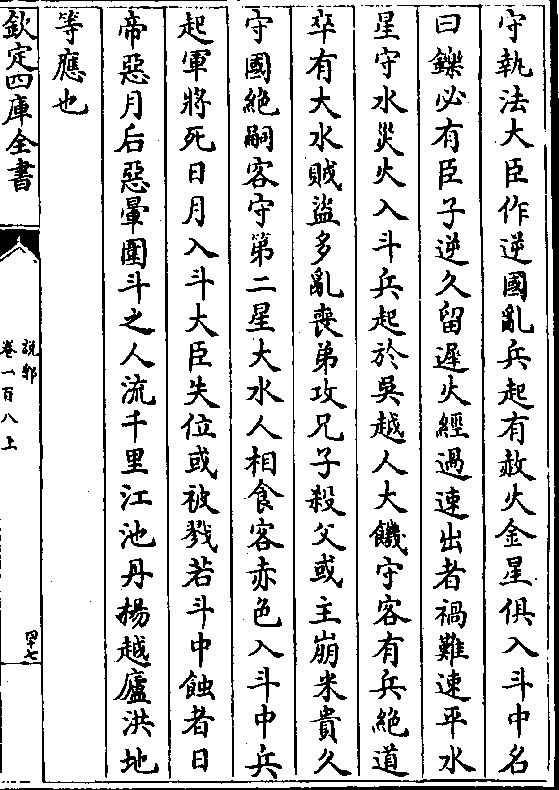 守執法大臣作逆國亂兵起有赦火金星俱入斗中名
曰鑠必有臣子逆久留遲火經過速出者禍難速平水
星守水災火入斗兵起於吳越人大饑守客有兵絕道
卒有大水賊盜多亂喪弟攻兄子殺父或主崩米貴久
守國絕嗣客守第二星大水人相食客赤色入斗中兵
起軍將死日月入斗大臣失位或被戮若斗中蝕者日
帝惡月后惡暈圍斗之人流千里江池丹揚越廬洪地
等應也
欽定四庫全書
說郛
卷一百八上
四十七